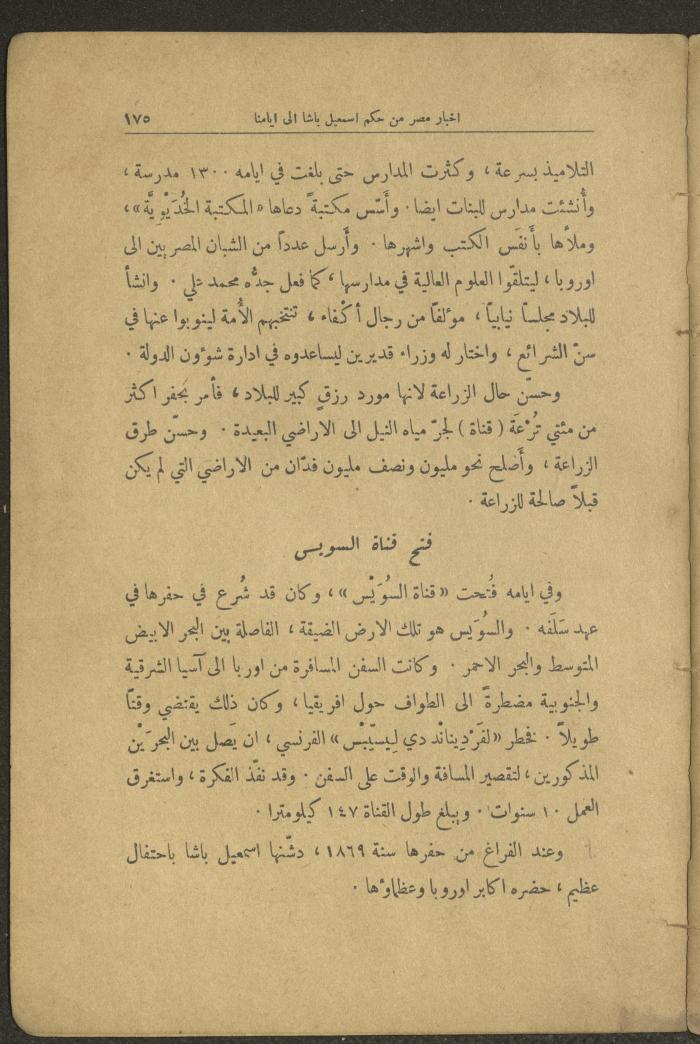 اخبار مصر من حكم اسمعيل باشا الى ايامنا ١٧٥
التلاميذ بسرعة ، وكثرت المدارس حتى بلغت في ايامه ١٣٠٠ مدرسة ،
وأُنشئت مدارس للبنات ايضا . وأَسّس مكتبةً دعاها «المكتبة الخُدَيْوِيَّة» ،
وملأها بأَنفَس الكتب واشهرها . وأَرسل عدداً من الشبان المصريين الى
اوروبا ، ليتلقّوا العلوم العالية في مدارسها ، كما فعل جدُّه محمد علي . وانشأ
للبلاد مجلساً نيابياً ، مؤلفاً من رجال أكْفاء ، تنتخبهم الأُمة لينوبوا عنها في
سنّ الشرائع ، واختار له وزراء قديرين ليساعدوه في ادارة شؤون الدولة .
وحسّن حال الزراعة لانها مورد رزقٍ كبير للبلاد ، فأمر بَحفر اكثر
من مئتي تُرْعَة ( قناة ) لجرّ مياه النيل الى الاراضي البعيدة . وحسّن طرق
الزراعة ، وأَصلح نحو مليون ونصف مليون فدّان من الاراضي التي لم يكن
قبلاً صالحة للزراعة .
فتح قناة السويس
وفي ايامه فُتحت «قناة السُوَيْس» ، وكان قد شُرع في حفرها في
عهد سَلَفه . والسُوَيس هو تلك الارض الضيقة ، الفاصلة بين البحر الابيض
المتوسط والبحر الاحمر . وكانت السفن المسافرة من اوربا الى آسيا الشرقية
والجنوبية مضطرةً الى الطواف حول افريقيا ، وكان ذلك يقتضي وقتاً
طويلاً . فخطر «لفَرْدِينانْد دي لِيسّيْبْس» الفرنسي ، ان يَصل بين البحرَيْن
المذكورين ، لتقصير المسافة والوقت على السفن . وقد نفّذ الفكرة ، واستغرق
العمل ١٠ سنوات . ويبلغ طول القناة ١٤٧ كيلومترا .
وعند الفراغ من حفرها سنة ١٨٦٩ ، دشّنها اسمعيل باشا باحتفال
عظيم ، حضره اكابر اوروبا وعظماؤها .